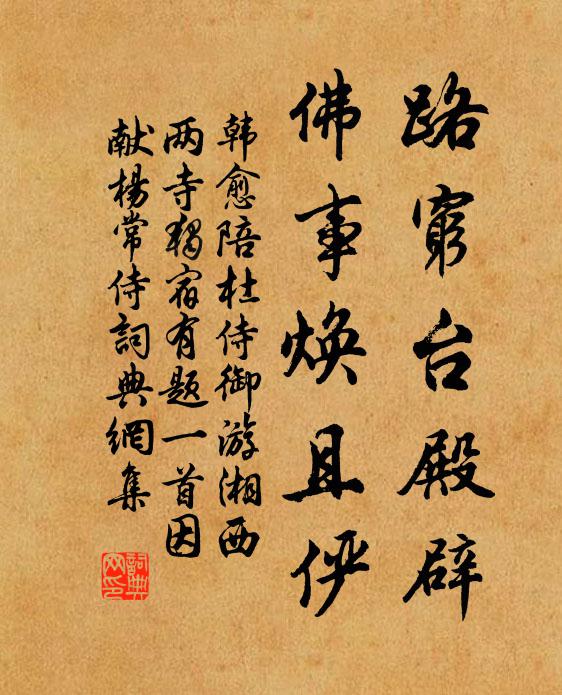 路穷台殿辟
佛事焕且俨
韩愈陪杜侍御游湘西
两寺独宿有题一首因
献杨常侍詞典網集
詞典网印